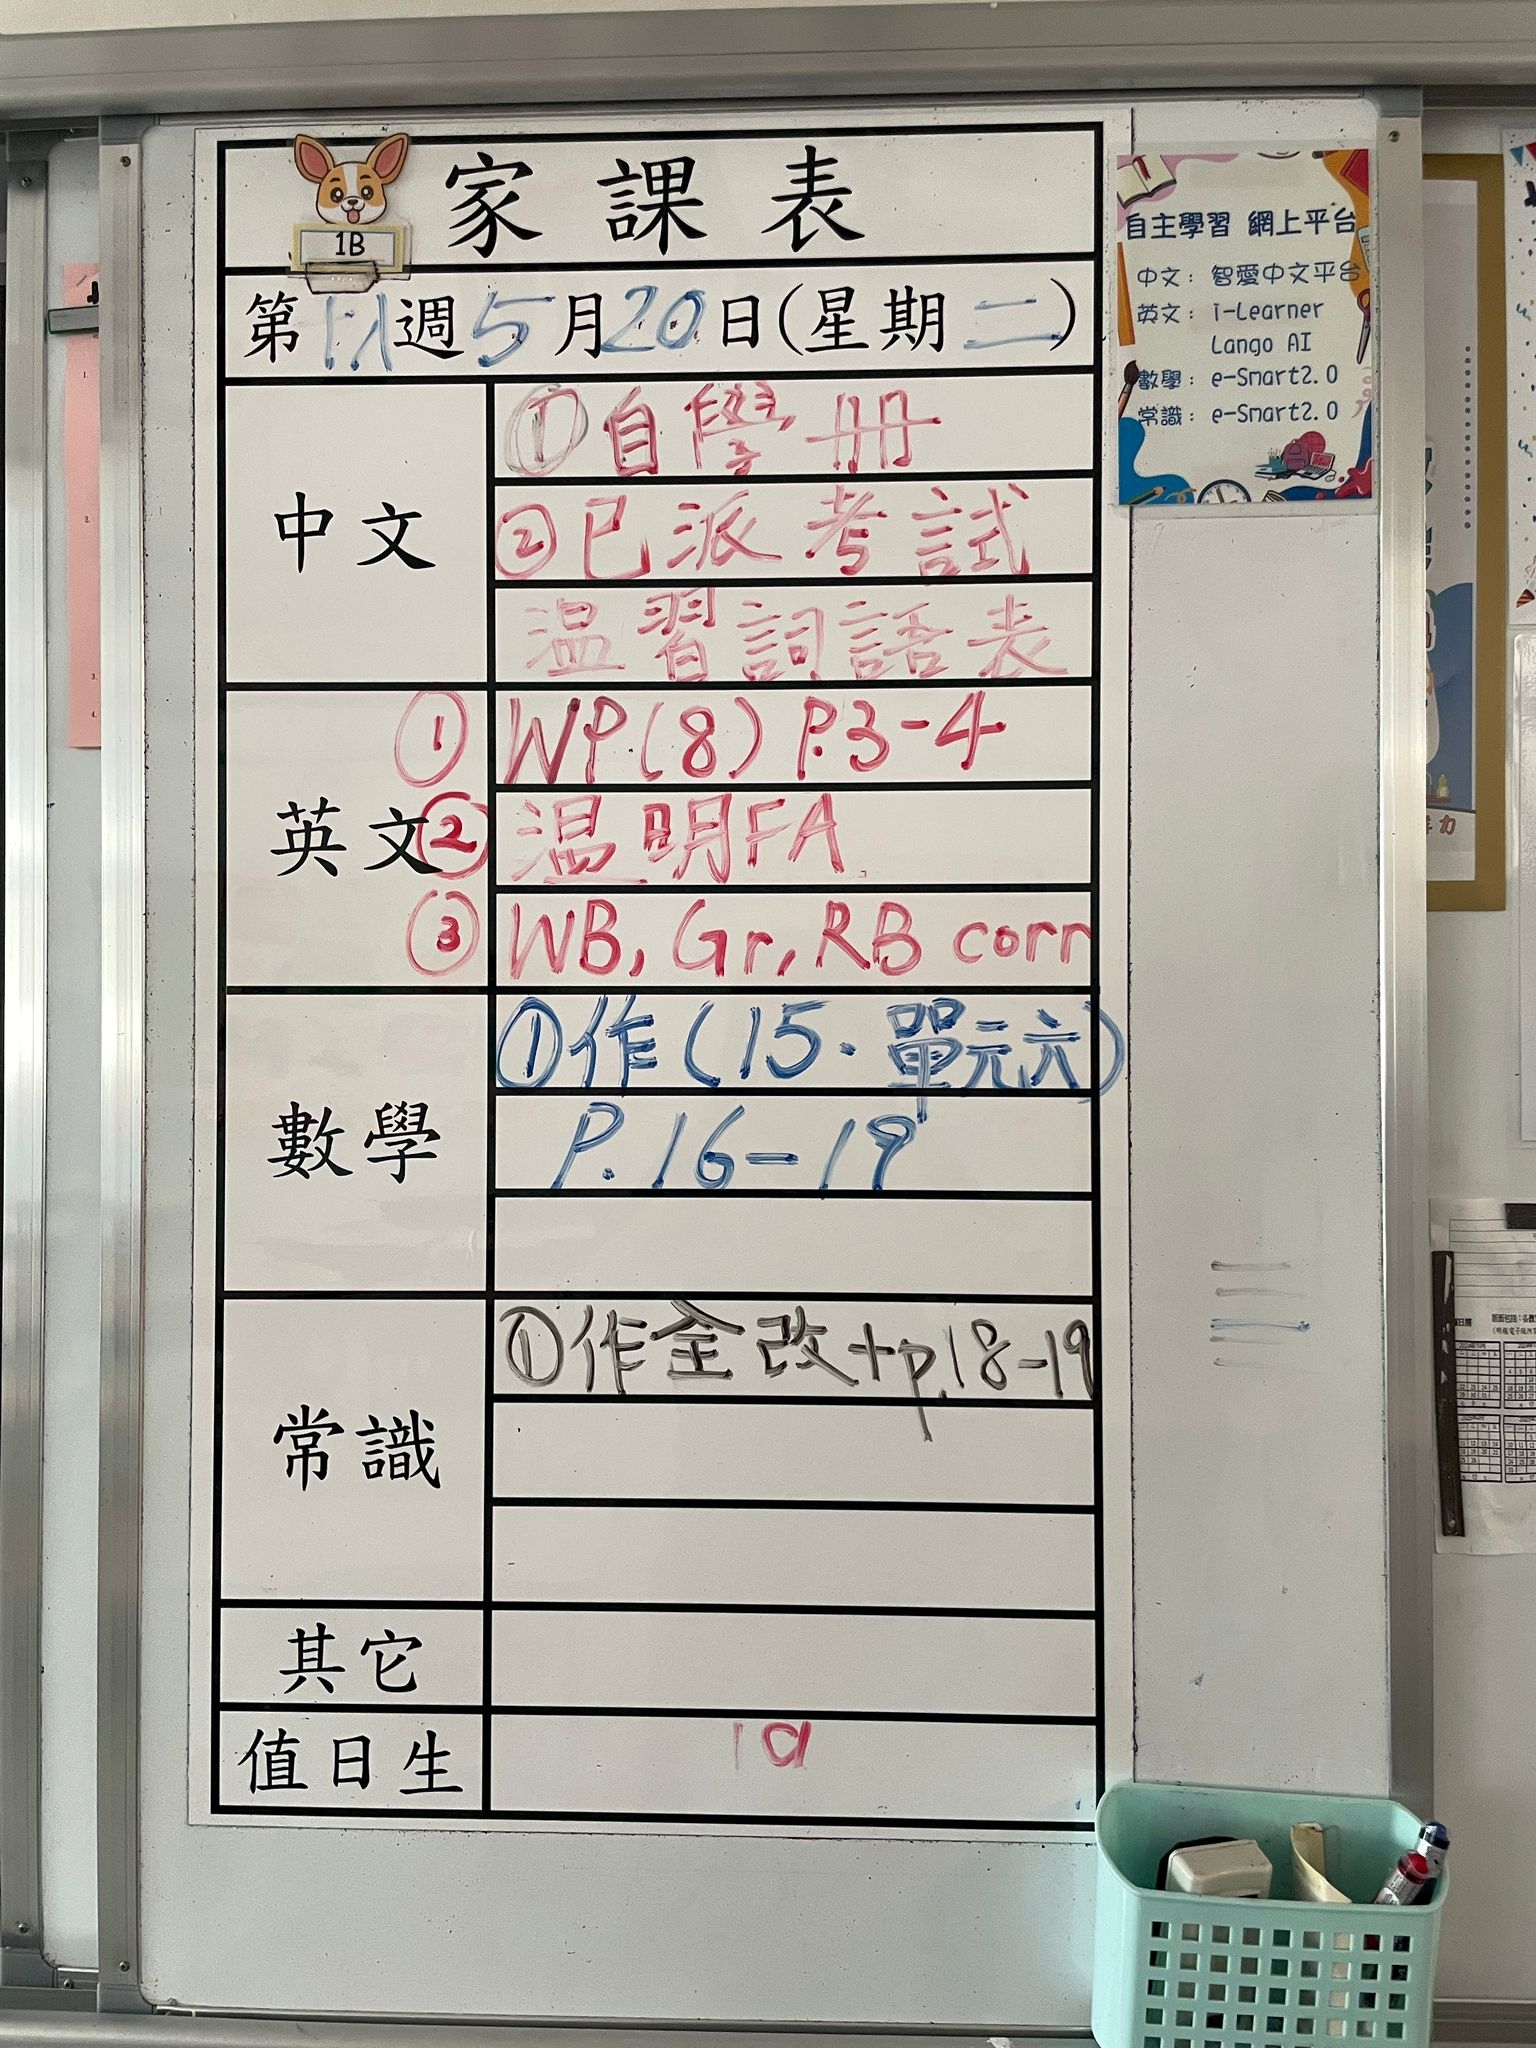 家課表
1B
第 週5月20日(星期二)
中文
①自學冊
②已派考試
温習詞語表
英文
① WP(8) P.3-4
② 温明FA
③ WB, Gr, RB corr
數學
①作(15.單元六)
P.16-19
常識
①作全改+p.18-19
其它
值日生
自主學習 網上平台
中文: 智愛中文平台
英文: i-Learner
Lango AI
數學: e-Smart2.0
常識: e-Smart2.0